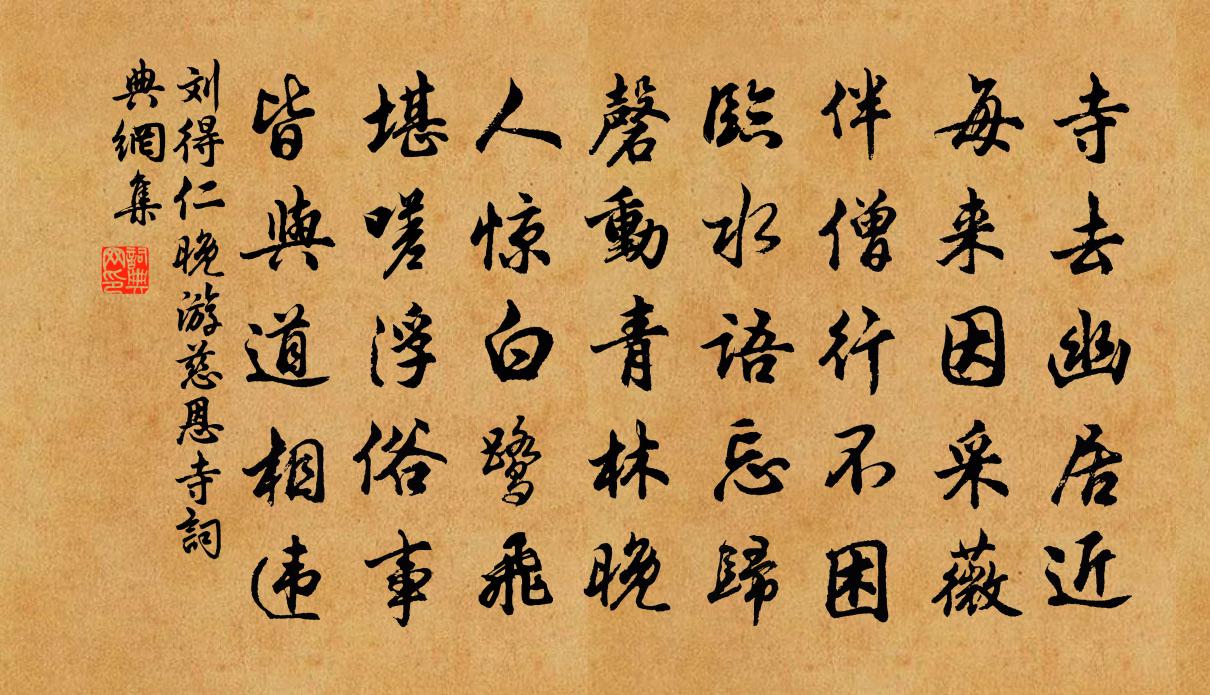 寺去幽居近
每来因采薇
伴僧行不困
臨水語忘歸
磬動青林晚
人惊白鹭飛
堪嗟浮俗事
皆與道相违
刘得仁晚游慈恩寺詞
典網集
詞典
网印